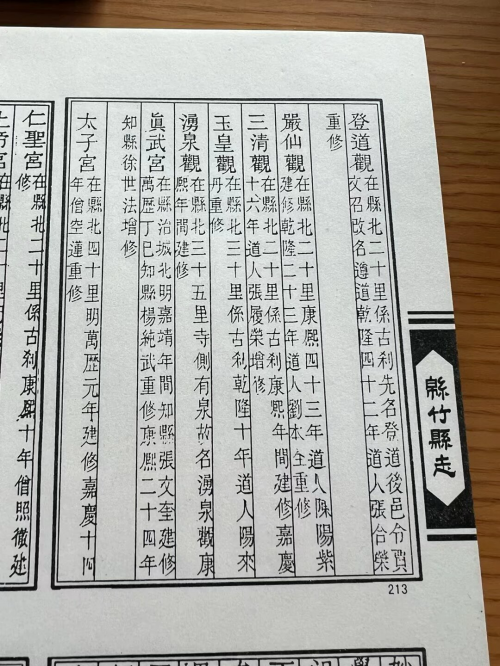 登道觀 在縣北二十里係古刹先名登道後邑令賈
文召改名遵道乾隆四十二年道人張合榮
重修
嚴仙觀 在縣北二十里康熙四十三年道人陳陽紫
建修乾隆二十三年道人劉本仝重修
三清觀 在縣北二十里係古刹康熙年間建修嘉慶
十六年道人張履榮增修
玉皇觀 在縣北三十里係古刹乾隆十年道人陽來
丹重修
湧泉觀 在縣北三十五里寺側有泉故名湧泉觀康
熙年間建修
眞武宮 在縣治城北明嘉靖年間知縣張文奎建修
萬歷丁巳知縣楊純武重修康熙二十四年
知縣徐世法增修
太子宮 在縣北四十里明萬歷元年建修嘉慶十四
年僧空蓮重修
仁聖宮 在縣北二十里係古刹康熙十年僧照徹建
修
緜竹縣志
213